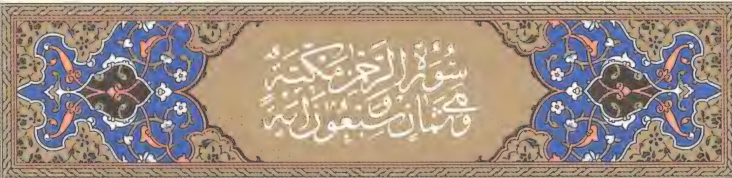 سُورَةُ الرَّحْمٰنِ مَكِّيَّةٌ
وَهِيَ ثَمَانٍ وَسَبْعُونَ آيَةً